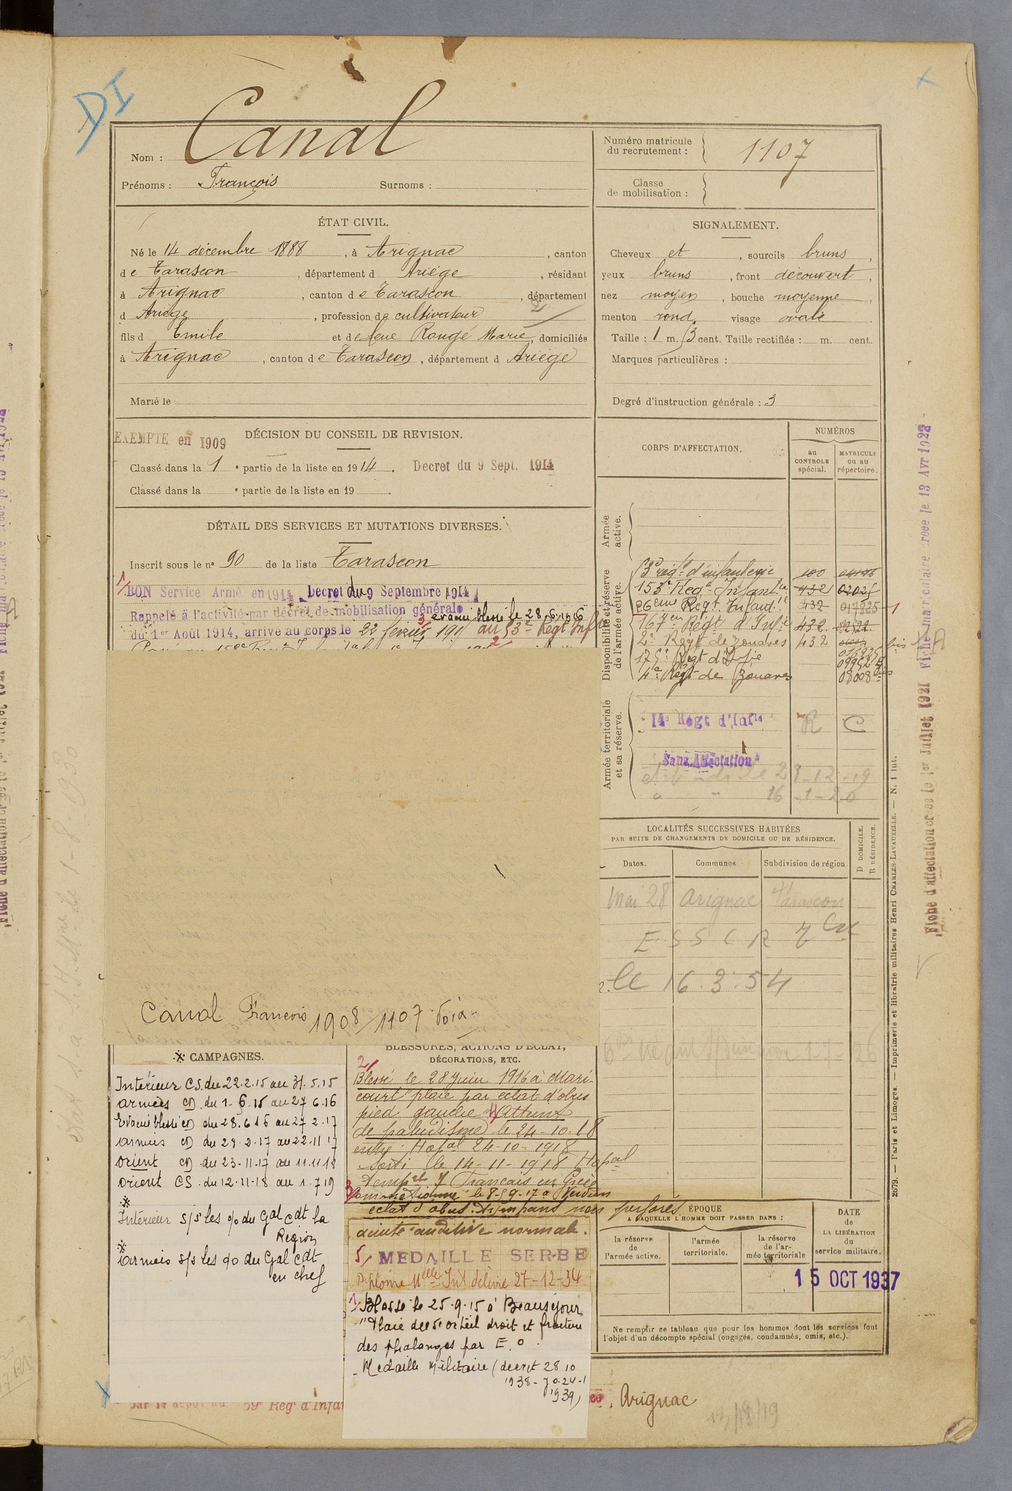 DI
Nom : Canal
Prénoms : François Surnoms :
Numéro matricule du recrutement : 1107
Classe de mobilisation :
ÉTAT CIVIL.
Né le 14 décembre 1888, à Arignac, canton
de Tarascon, département d Ariège, résidant
à Arignac, canton de Tarascon, département
d Ariège, profession de cultivateur
fils d Emile et de feue Rougé Marie, domiciliés
à Arignac, canton de Tarascon, département d Ariège
Marié le
SIGNALEMENT.
Cheveux et, sourcils bruns,
yeux bruns, front découvert,
nez moyen, bouche moyenne
menton rond, visage ovale
Taille : 1 m. 73 cent. Taille rectifiée : m. cent.
Marques particulières :
Degré d'instruction générale : 3
EXEMPTE en 1909
DÉCISION DU CONSEIL DE REVISION.
Classé dans la 1e partie de la liste en 1914. Decret du 9 Sept. 1914
Classé dans la e partie de la liste en 19
DÉTAIL DES SERVICES ET MUTATIONS DIVERSES.
Inscrit sous le n° 90 de la liste Tarascon
1/ BON Service Armé en 1914 Decret du 9 Septembre 1914
Rappelé à l'activité par décret de mobilisation générale évacué blessé le 28-6-1916
du 1er Août 1914, arrivé au corps le 22 février 1915 au 53e Régt Infie
CORPS D'AFFECTATION.
NUMÉROS
au CONTROLE spécial.
MATRICULE ou au répertoire.
Armée active.
Disponibilité et réserve de l'armée active.
153e Reg. Infantie 432
96eme Regt Infant. 432
167em Régt d'Infie 432
2e Regt de Zouaves 432
125e Regt d'Infie
4e Régt de Zouaves
Armée territoriale et sa réserve.
14e Regt d'Infie R C
Sans Affectation
16 -1-20
LOCALITÉS SUCCESSIVES HABITÉES
PAR SUITE DE CHANGEMENTS DE DOMICILE OU DE RÉSIDENCE.
Dates. Communes. Subdivision de région. D DOMICILE. R RÉSIDENCE.
Mai 28 Arignac Tarascon
le 16.3.54
Canal François 1908/1107 Foix
CAMPAGNES.
Intérieur CS. du 22.2.15 au 31.5.15
armées CD. du 1-6.15 au 27 6.16
Evacué blessé CD du 28.6 16 au 27 2.17
armées CD du 29 2-17 au 22.11 17
Orient CD du 23-11.17 au 11.11.18
Orient CS. du 12-11-18 au 1.7 19
Intérieur s/s les o/o du Gal cdt la
Region
armées s/s les o/o du Gal cdt
en chef
BLESSURES, ACTIONS D'ÉCLAT,
DÉCORATIONS, ETC.
2/
Blessé le 28 Juin 1916 à Mari-
court plaie par éclat d'obus
pied gauche 4/ Atteint
de paludisme le 24-10-18
entré Hopal 24-10-1918
Sorti le 14-11-1918 Hopal
Tempre 7 Français en Grèce
3/ Commotionné le 8-9-17 à Verdun
éclat d'obus. Tympans non perforés
acuité auditive normale.
5/ MEDAILLE SERBE
Diplome Melle Int délivré 27-12-34
1/ Blessé le 25.9.15 à Beauséjour
"Plaie du 5e orteil droit et fracture
des phalanges par E.O.
- Medaille Militaire (decret 28 10
1938 - J.O. 24-1
1939)
ÉPOQUE
A LAQUELLE L'HOMME DOIT PASSER DANS :
la réserve de l'armée active.
l'armée territoriale.
la réserve de l'armée territoriale
DATE de LA LIBÉRATION du service militaire.
15 OCT 1937
Ne remplir ce tableau que pour les hommes dont les services font
l'objet d'un décompte spécial (engagés, condamnés, omis, etc.).
par le dépôt du 59e Reg d'Infan
Arignac
13/18/19
2679. — Paris et Limoges. — Imprimerie et librairie militaires Henri CHARLES-LAVAUZELLE. — N. 1 int.
Fiche d'affectation créée le 1er Juillet 1921
Fiche matriculaire créée le 19 Avr 1922